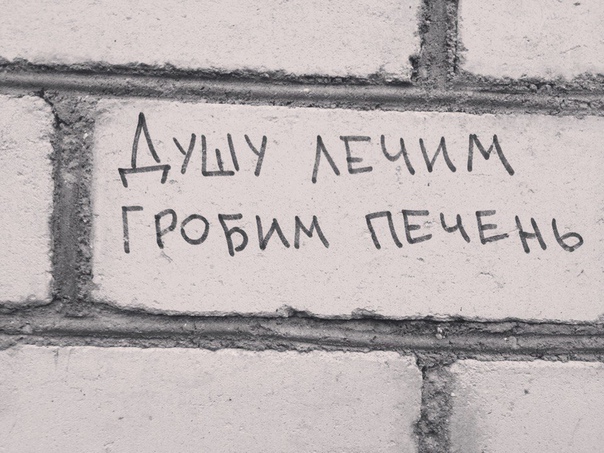 Душу лечим
гробим печень